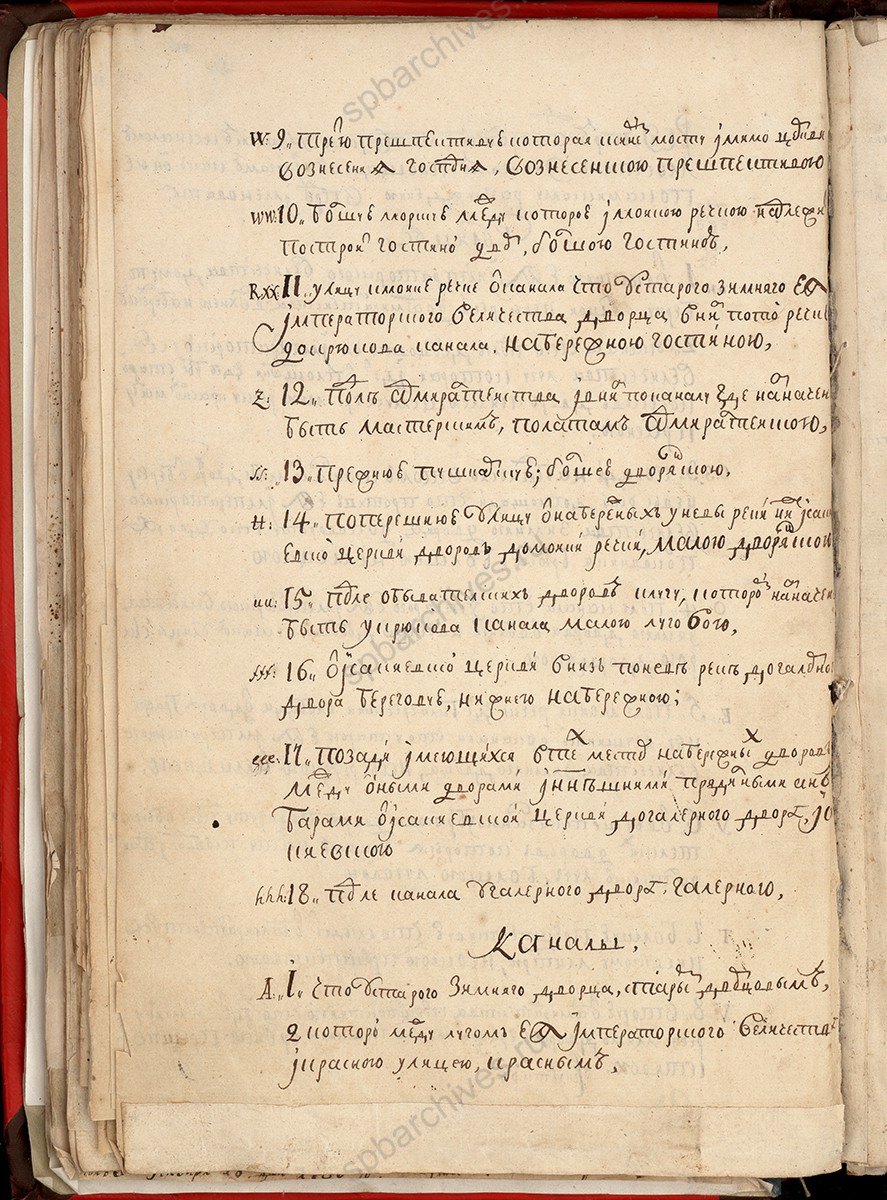 W: 9,, Третю прешпективу которая к синему мосту и мимо церкви
Вознесения Господня, Вознесенскою прешпективою
WW: 10,, Большую морскую между которою и мойкою речкою надлежит
построить гостиной двор, большою гостиной,
Rxx 11,, улицу и мойке речке от канала что у старого зимняго Ея
Императорского Величества дворца вниз по той речке
до крюкова канала, набережною гостиною,
Z: 12,, Подле адмиралтейства и вниз по каналу где назначено
быть мастерским, полатам адмиралтейскою,
13,, Прежнюю пушкарскую, большею дворянскою,
tt: 14,, поперешнюю улицу от набережных у невы реки
церкви дворов до мойки речки, малою дворянскою
uu: 15,, подле обывателских дворов к лугу, которой назначен
быть у крюкова канала малою луговою,
fff: 16,, от Исакиевской церкви вниз по неве реке до галерного
двора береговую, нижнею набережною;
ggg: 17,, позади имеющихся в том месте набережных дворов
между оными дворами и нынешними прядильными анбарами
от Исакиевской церкви до галерного двора, Исакиевскою
hhh: 18,, подле канала у галерного двора, галерною,
Каналы,
A.,, 1,, что у старого Зимняго дворца, старым дворцовым,
2 которой между лугом Ея Императорского Величества
и красною улицею, красным,